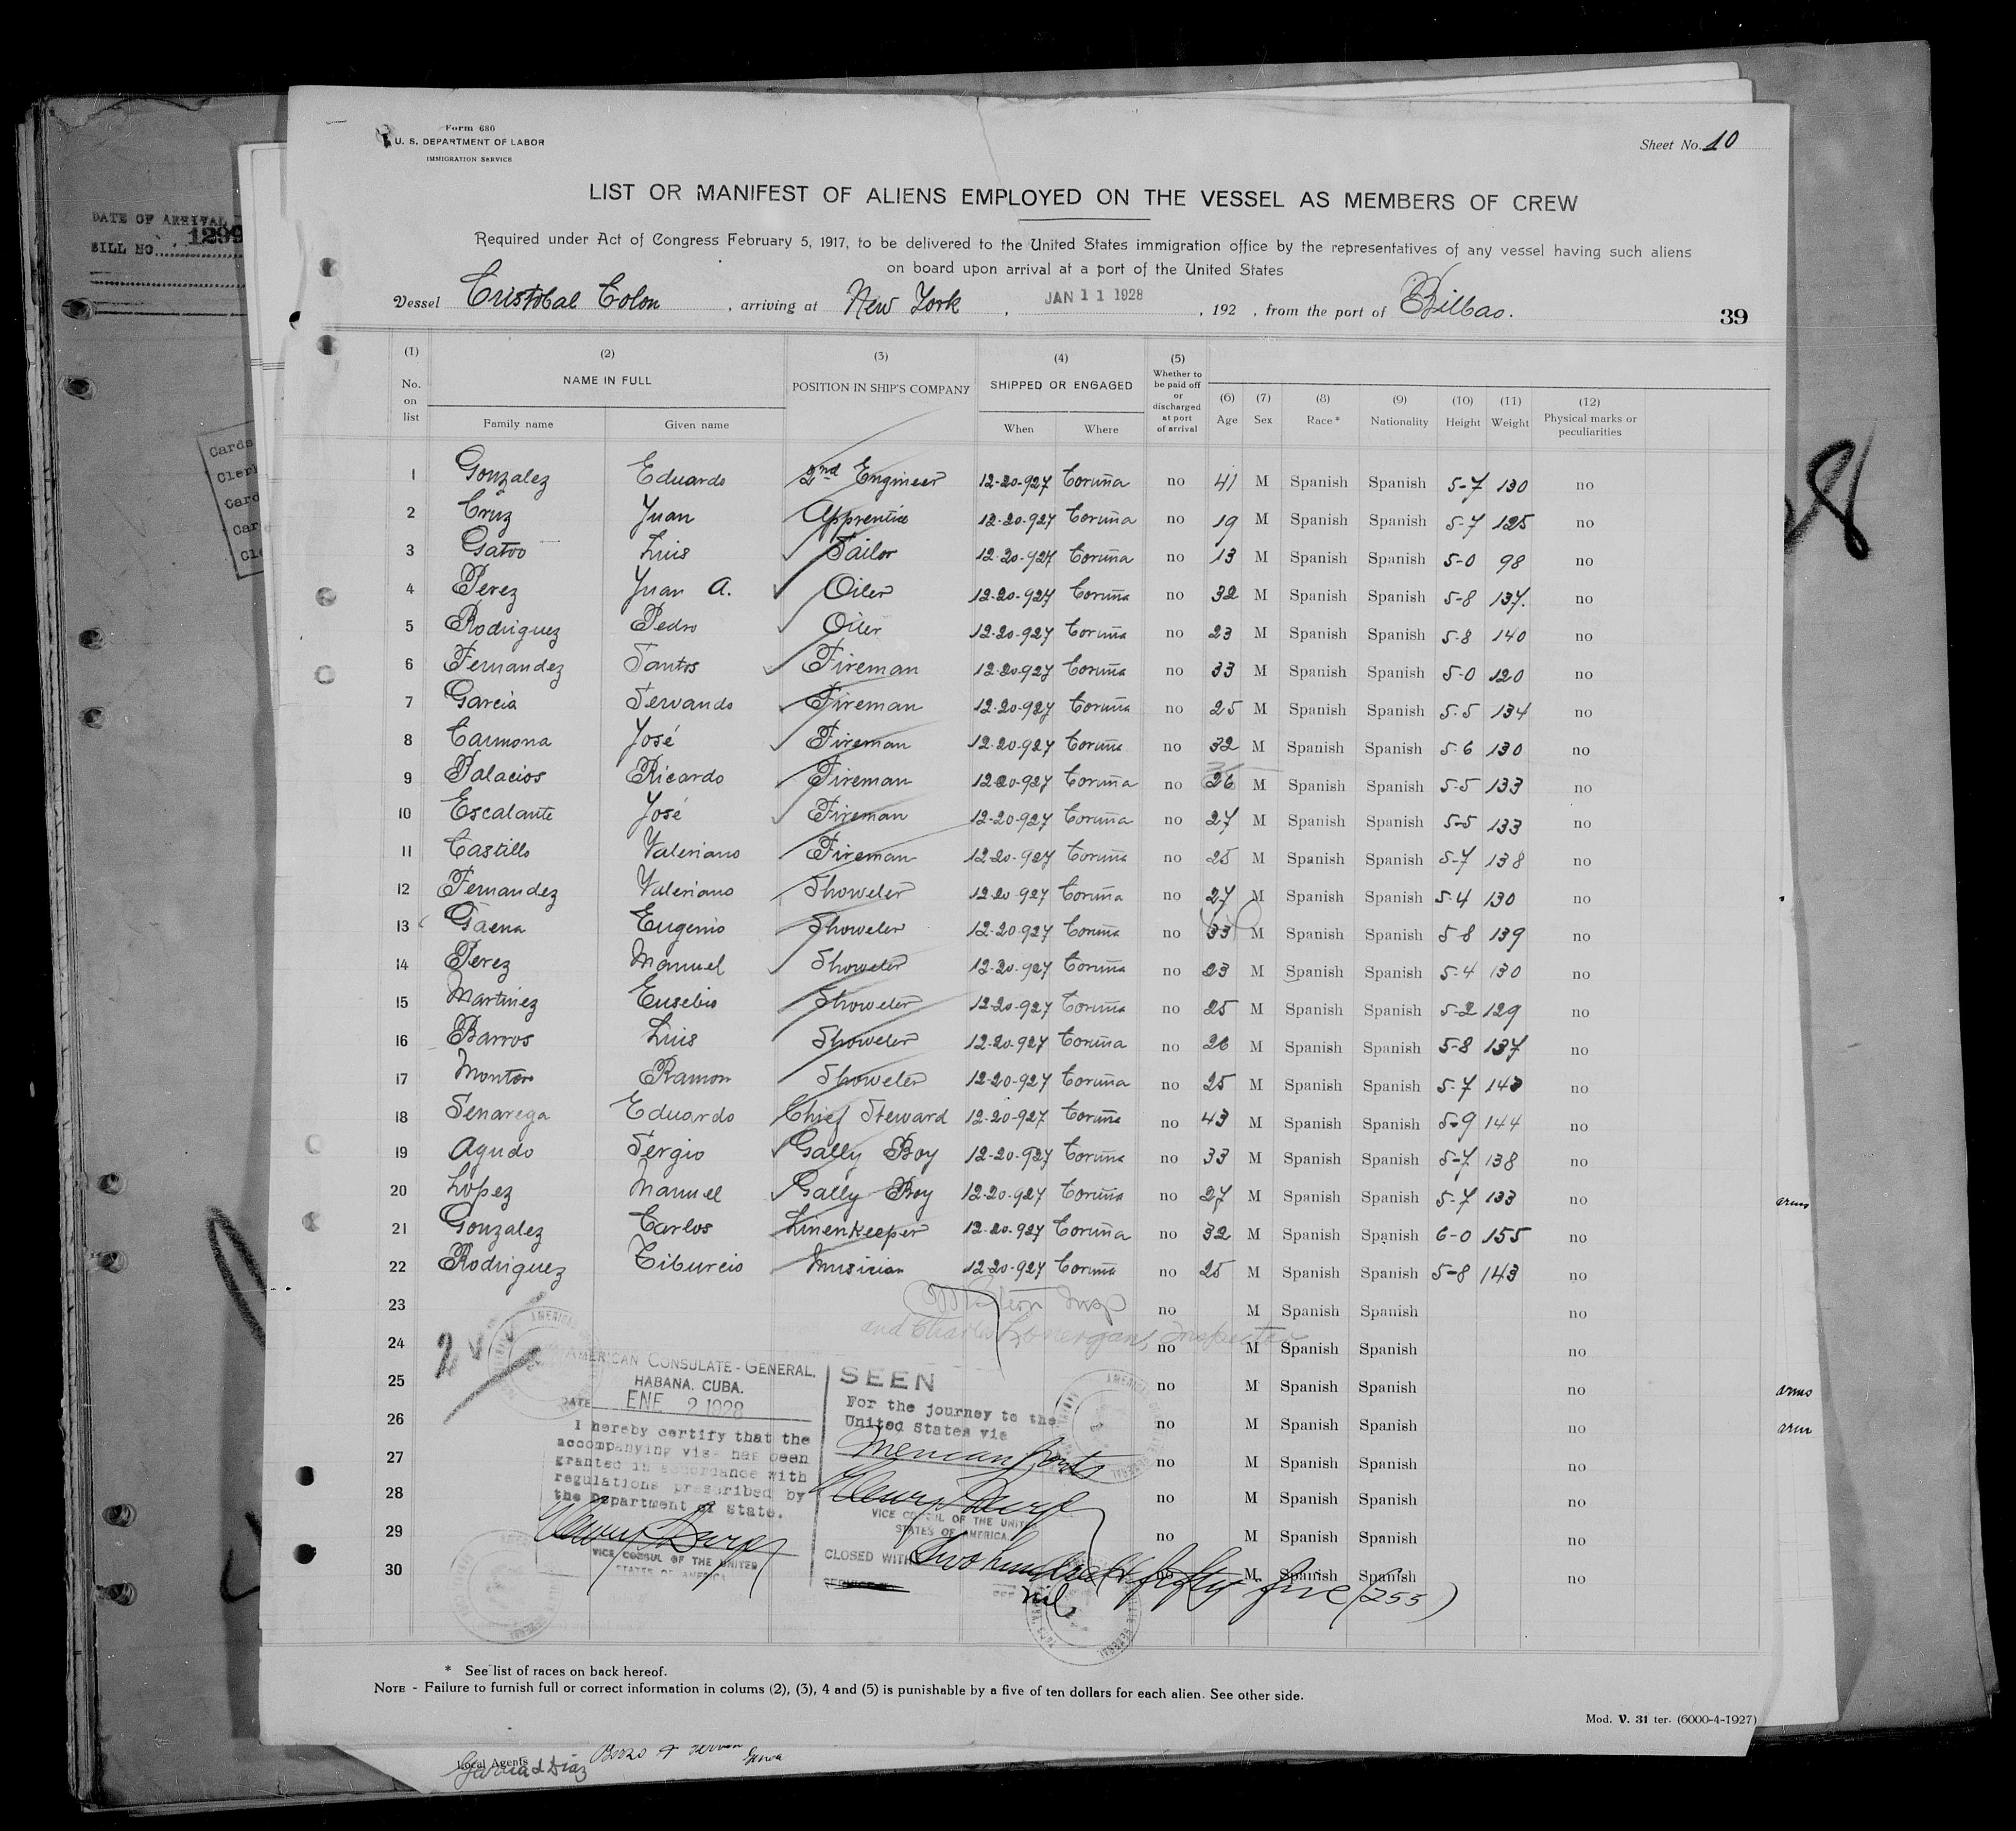 Form 680
U. S. DEPARTMENT OF LABOR
IMMIGRATION SERVICE
Sheet No. 10
LIST OR MANIFEST OF ALIENS EMPLOYED ON THE VESSEL AS MEMBERS OF CREW
Required under Act of Congress February 5, 1917, to be delivered to the United States immigration office by the representatives of any vessel having such aliens
on board upon arrival at a port of the United States
Vessel Cristobal Colon, arriving at New York, JAN 11 1928, 192 , from the port of Bilbao.
39
DATE OF ARRIVAL
BILL NO. 1299
(1) No. on list (2) NAME IN FULL Family name Given name (3) POSITION IN SHIP'S COMPANY (4) SHIPPED OR ENGAGED When Where (5) Whether to be paid off or discharged at port of arrival (6) Age (7) Sex (8) Race* (9) Nationality (10) Height (11) Weight (12) Physical marks or peculiarities
1 Gonzalez Eduardo 2nd Engineer 12-20-927 Coruña no 41 M Spanish Spanish 5-7 130 no
2 Cruz Juan Apprentice 12-20-927 Coruña no 19 M Spanish Spanish 5-7 125 no
3 Luis Sailor 12-20-927 Coruña no 13 M Spanish Spanish 5-0 98 no
4 Perez Juan A. Oiler 12-20-927 Coruña no 32 M Spanish Spanish 5-8 137. no
5 Rodriguez Pedro Oiler 12-20-927 Coruña no 23 M Spanish Spanish 5-8 140 no
6 Fernandez Santos Fireman 12-20-927 Coruña no 33 M Spanish Spanish 5-0 120 no
7 Garcia Servando Fireman 12-20-927 Coruña no 25 M Spanish Spanish 5-5 134 no
8 Carmona José Fireman 12-20-927 Coruña no 32 M Spanish Spanish 5-6 130 no
9 Palacios Ricardo Fireman 12-20-927 Coruña no 26 M Spanish Spanish 5-5 133 no
10 Escalante José Fireman 12-20-927 Coruña no 27 M Spanish Spanish 5-5 133 no
11 Castillo Valeriano Fireman 12-20-927 Coruña no 25 M Spanish Spanish 5-7 138 no
12 Fernandez Valeriano Showeler 12-20-927 Coruña no 27 M Spanish Spanish 5-4 130 no
13 Gaena Eugenio Showeler 12-20-927 Coruña no 33 M Spanish Spanish 5-8 139 no
14 Perez Manuel Showeler 12-20-927 Coruña no 23 M Spanish Spanish 5-4 130 no
15 Martinez Eusebio Showeler 12-20-927 Coruña no 25 M Spanish Spanish 5-2 129 no
16 Barros Luis Showeler 12-20-927 Coruña no 26 M Spanish Spanish 5-8 137 no
17 Ramon Showeler 12-20-927 Coruña no 25 M Spanish Spanish 5-7 143 no
18 Senarega Eduardo Chief Steward 12-20-927 Coruña no 43 M Spanish Spanish 5-9 144 no
19 Agudo Sergio Gally Boy 12-20-927 Coruña no 33 M Spanish Spanish 5-7 138 no
20 Lopez Manuel Gally Boy 12-20-927 Coruña no 27 M Spanish Spanish 5-7 133 no
21 Gonzalez Carlos Linenkeeper 12-20-927 Coruña no 32 M Spanish Spanish 6-0 155 no
22 Rodriguez Tiburcio Musician 12-20-927 Coruña no 25 M Spanish Spanish 5-8 143 no
23 no M Spanish Spanish no
and Charles Lonergan, Inspector
24 no M Spanish Spanish no
25 no M Spanish Spanish no
26 no M Spanish Spanish no
27 no M Spanish Spanish no
28 no M Spanish Spanish no
29 no M Spanish Spanish no
30 no M Spanish Spanish no
AMERICAN CONSULATE-GENERAL.
HABANA. CUBA.
DATE ENE 2 1928
I hereby certify that the
accompanying visa has been
granted in accordance with
regulations prescribed by
the Department of State.
VICE CONSUL OF THE UNITED
STATES OF AMERICA
SEEN
For the journey to the
United States via
Mexican ports
VICE CONSUL OF THE UNITED
STATES OF AMERICA
CLOSED WITH Two hundred & fifty five (255)
* See list of races on back hereof.
NOTE - Failure to furnish full or correct information in colums (2), (3), 4 and (5) is punishable by a five of ten dollars for each alien. See other side.
Mod. V. 31 ter. (6000-4-1927)
Local Agents
Garcia & Diaz